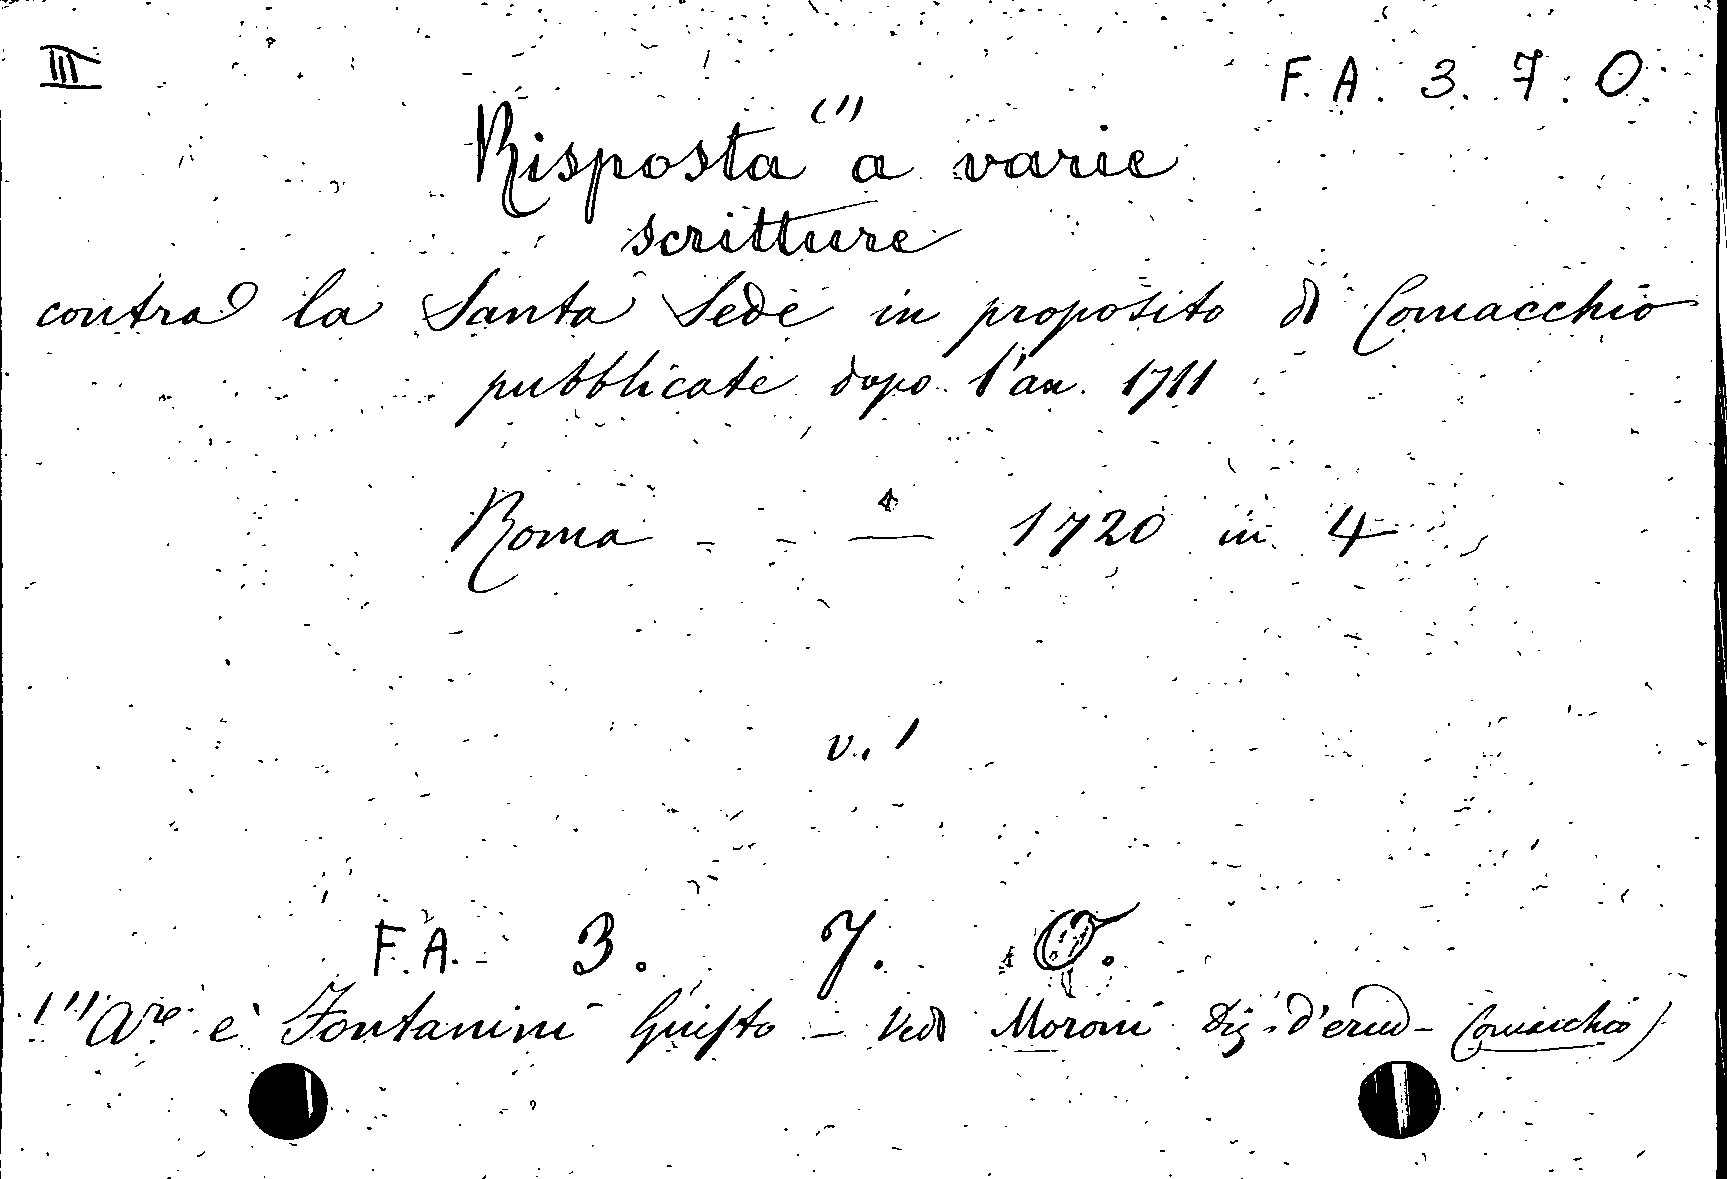 III F. A. 3. 7. O.
Risposta (1) a varie
scritture
contra la Santa Sede in proposito di Comacchio
pubblicate dopo l'an. 1711
Roma - - — 1720 in 4
v. 1
F. A. 3. 7. O.
(1) Are è Fontanini Giusto - Vedi Moroni Diz. d'erud - Comacchio)